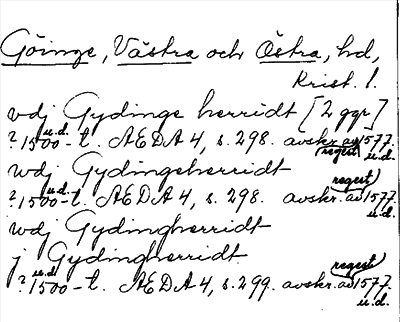 Göinge, Västra och Östra, hd,
Krist. l.
vdj Gydinge herridt [2 ggr]
? 1500-t. u.d. AEDA 4, s. 298. avskr. av (regest) 1577. u.d.
wdj Gydingeherridt
? 1500-t. u.d. AEDA 4, s. 298. avskr. av (regest) 1577. u.d.
wdj Gydingherridt
j Gydingherridt
? 1500-t. u.d. AEDA 4, s. 299. avskr. av (regest) 1577. u.d.